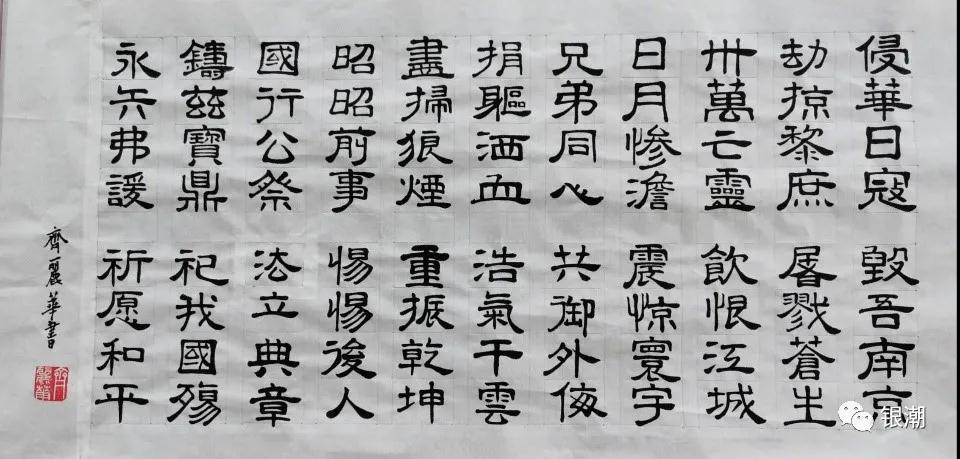 侵華日寇 毀吾南京
劫掠黎庶 屠戮蒼生
卅萬亡靈 飲恨江城
日月惨澹 震惊寰宇
兄弟同心 共御外侮
捐軀洒血 浩氣干雲
盡掃狼煙 重振乾坤
昭昭前事 惕惕後人
國行公祭 法立典章
鑄兹寶鼎 祀我國殤
永矢弗諼 祈愿和平
齊麗華書
银潮